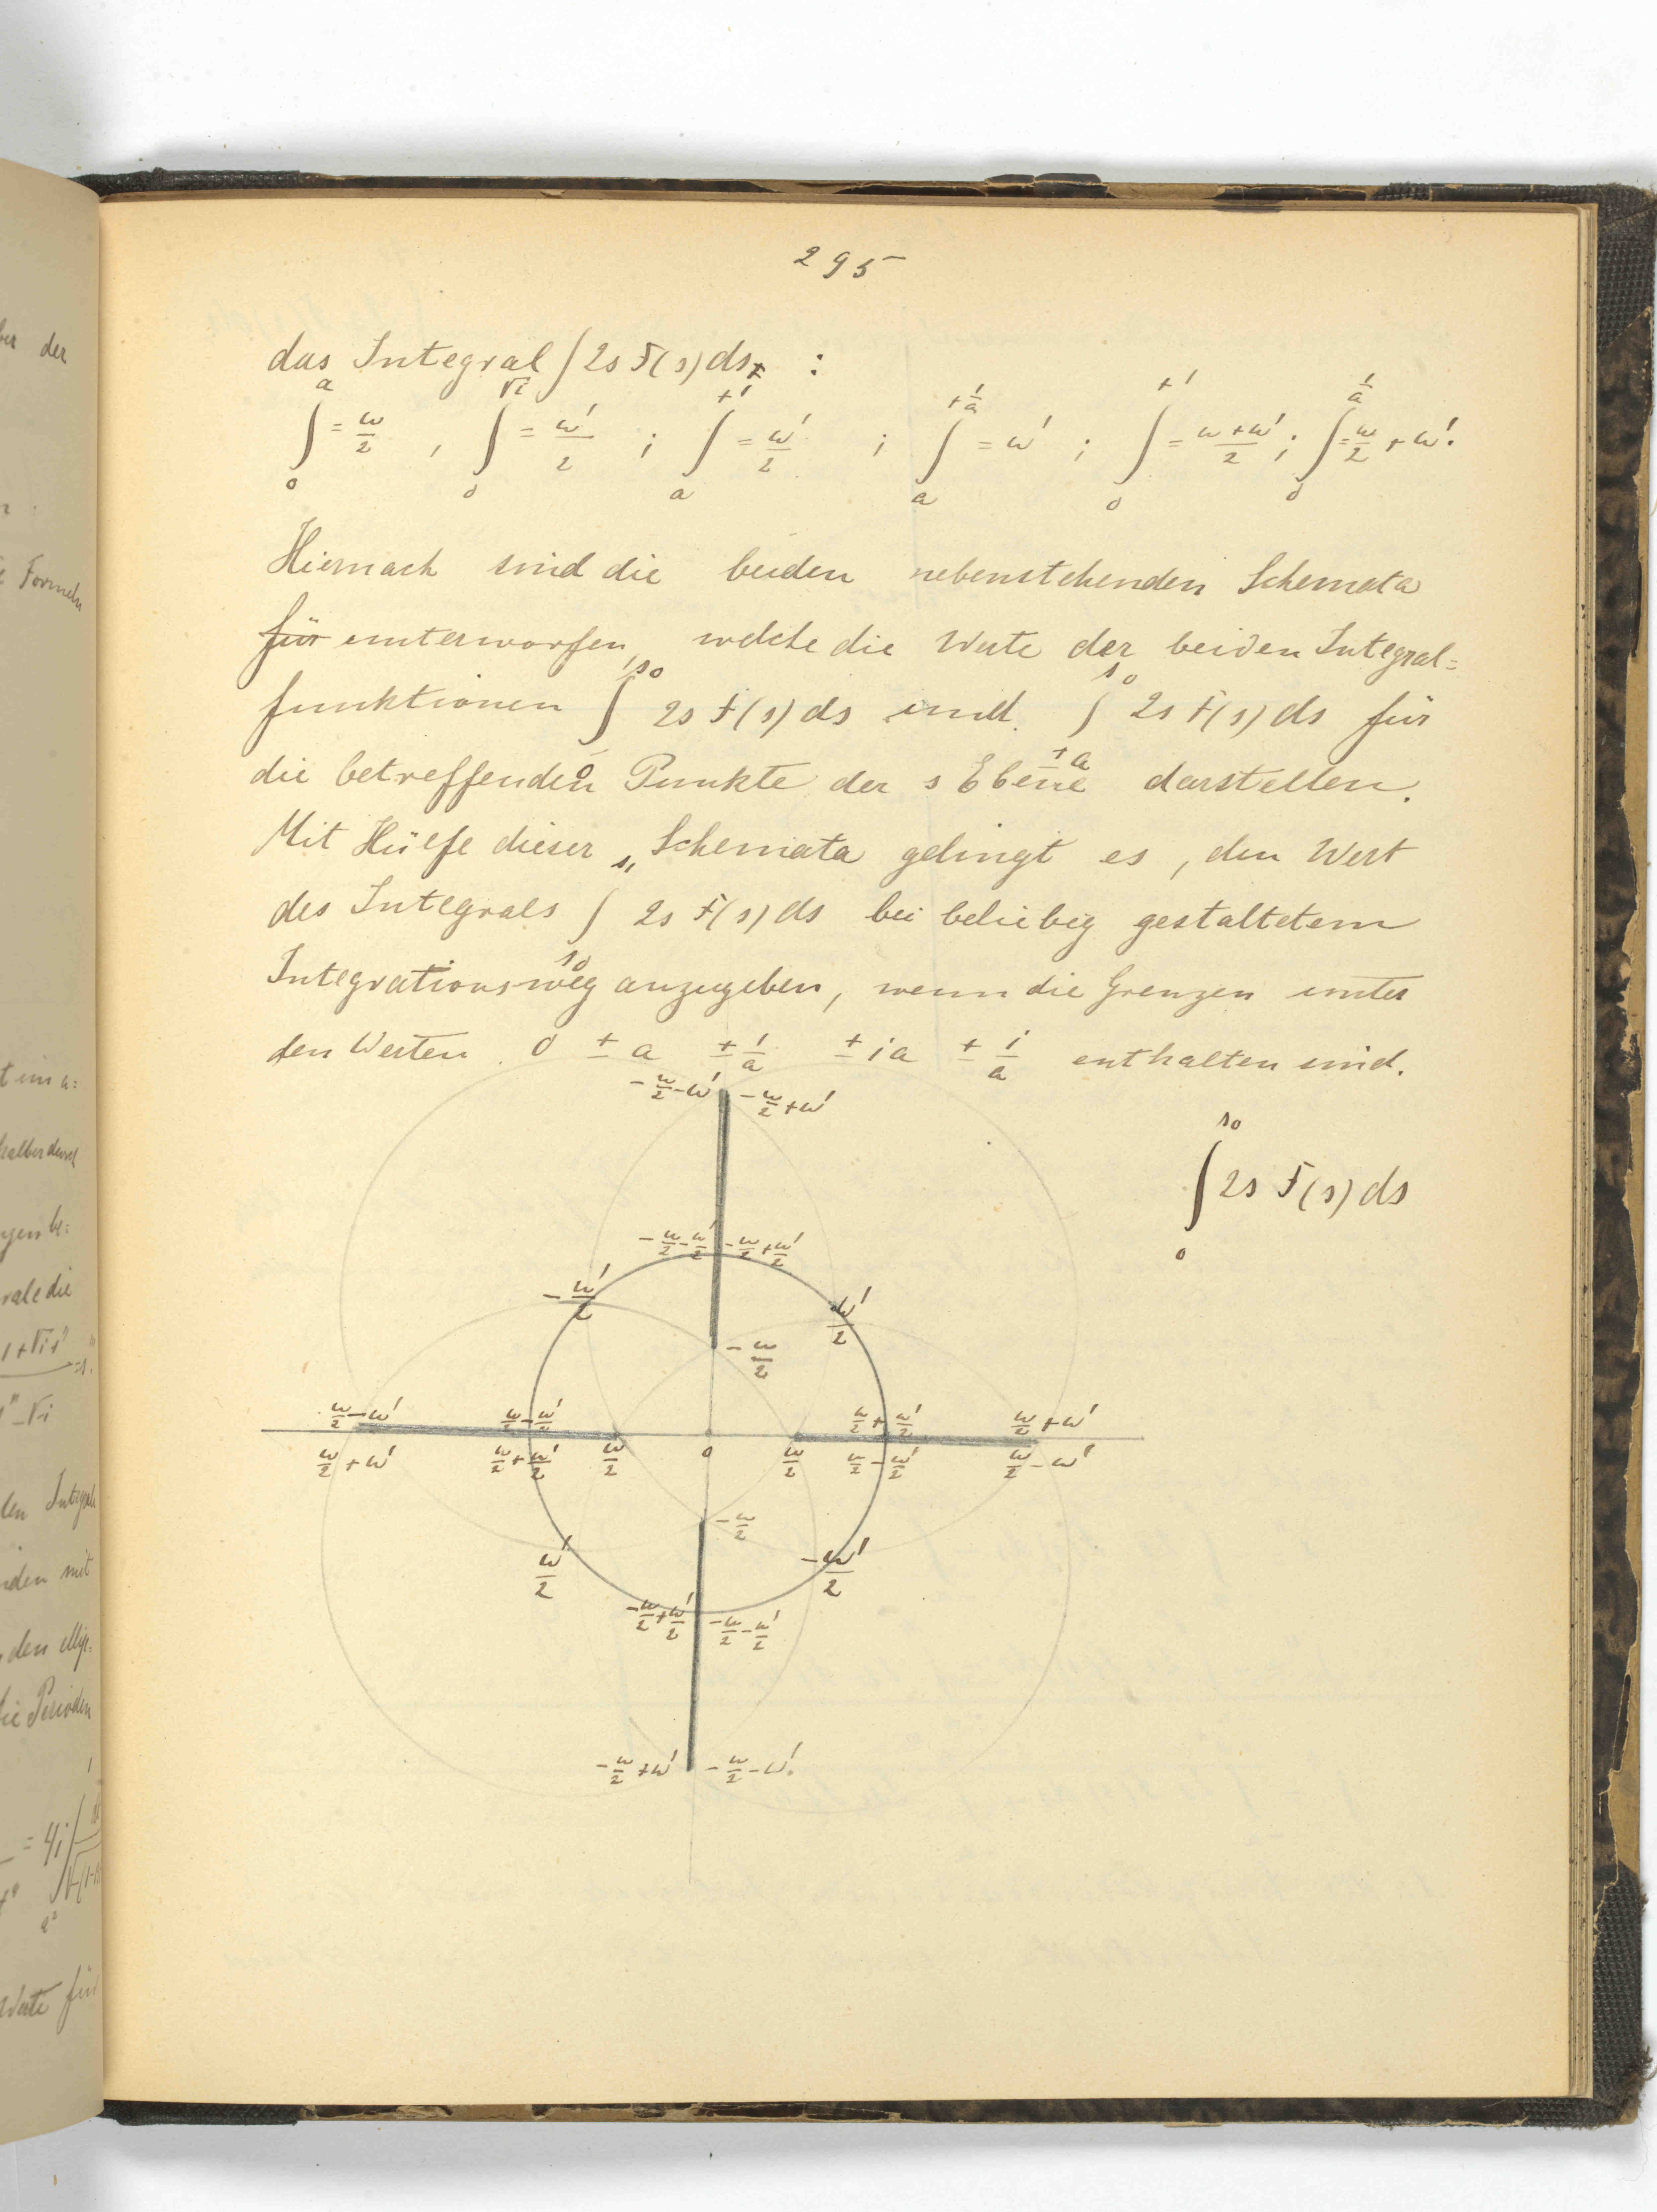 295
das Integral ∫ 2s F(s) ds :
∫₀^a = ω/2 , ∫₀^√i = ω'/2 ; ∫_a^+1 = ω'/2 ; ∫_a^+1/a = ω' ; ∫₀^+1 = (ω+ω')/2 ; ∫₀^1/a = ω/2 + ω'.
Hiernach sind die beiden nebenstehenden Schemata
für entworfen, welche die Werte der beiden Integral=
funktionen ∫₀^s₀ 2s F(s) ds und ∫_±a^s₀ 2s F(s) ds für
die betreffenden Punkte der s Ebene darstellen.
Mit Hülfe dieser Schemata gelingt es, den Wert
des Integrals ∫_s₀^s₁ 2s F(s) ds bei beliebig gestaltetem
Integrationsweg anzugeben, wenn die Grenzen unter
den Werten 0 ± a ± 1/a ± ia ± i/a enthalten sind.
-ω/2-ω' -ω/2+ω'
∫₀^s₀ 2s F(s) ds
-ω/2-ω'/2 -ω/2+ω'/2
-ω'/2 ω'/2
-ω/2
ω/2-ω' ω/2-ω'/2 ω/2+ω'/2 ω/2+ω'
ω/2+ω' ω/2+ω'/2 ω/2 0 ω/2 ω/2-ω'/2 ω/2-ω'
-ω/2
ω'/2 -ω'/2
-ω/2+ω'/2 -ω/2-ω'/2
-ω/2+ω' -ω/2-ω'.
der
Formeln
den Integrale
den mit
die Perioden
Werte für